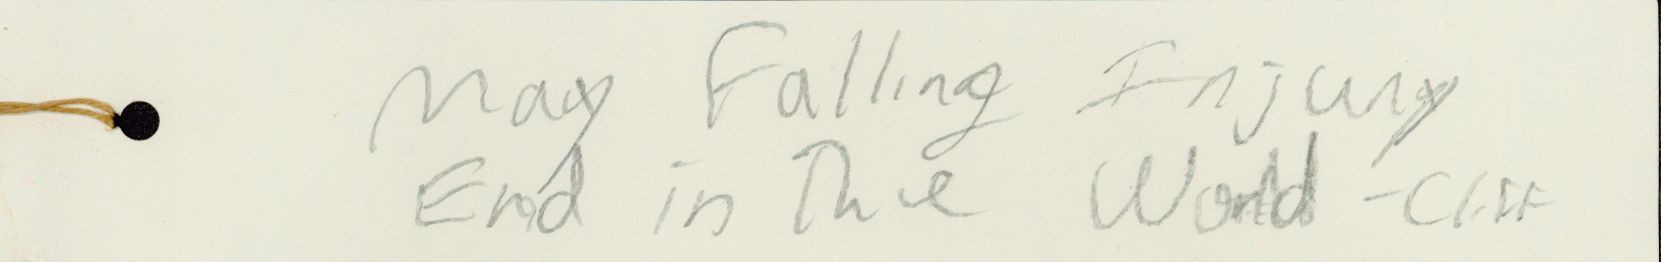 May Falling Injury
End in The World - Cliff